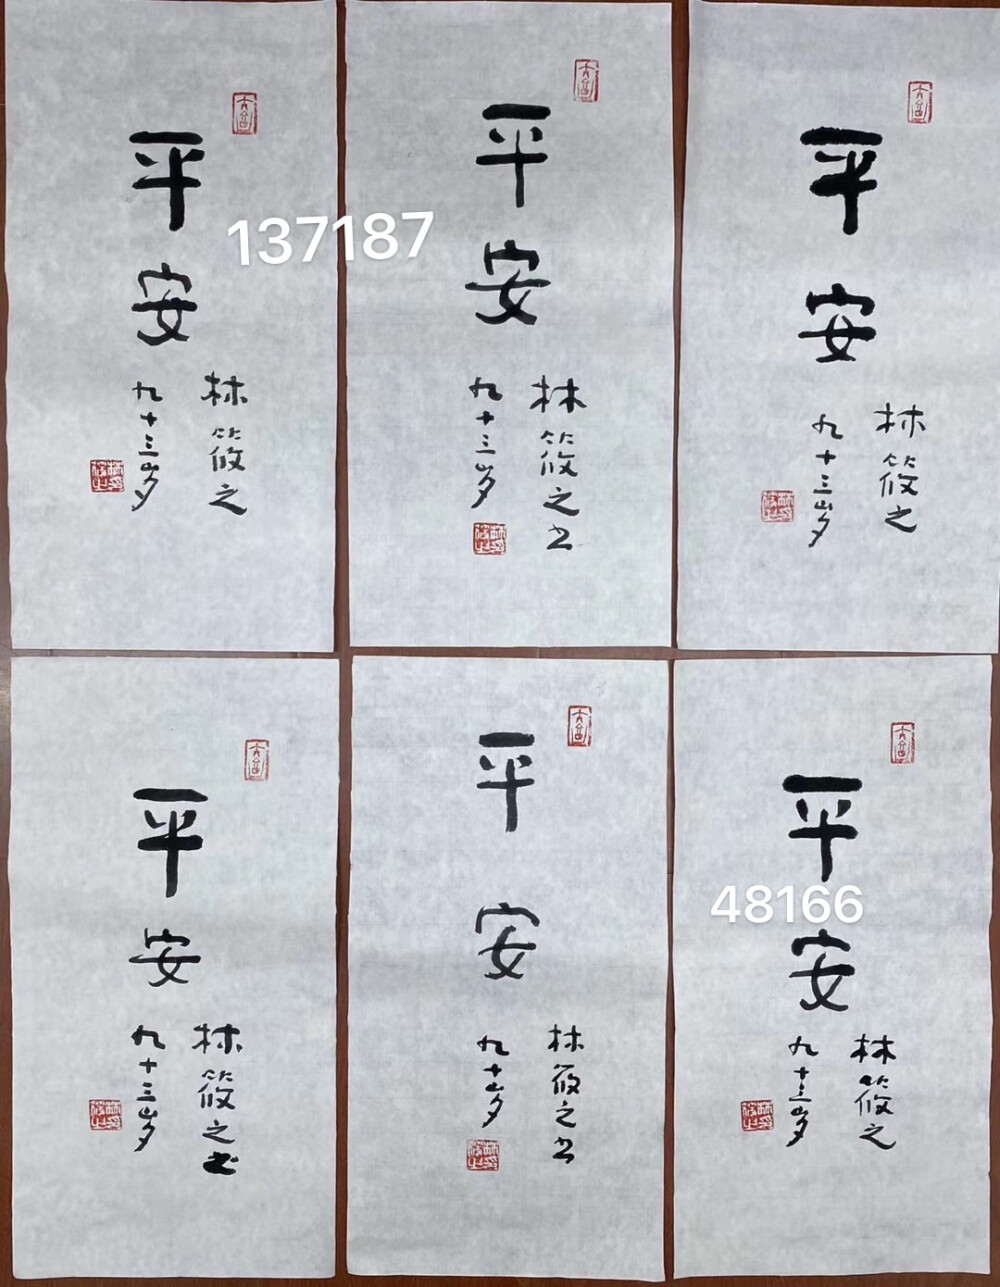 平安
林筱之
九十三岁
137187
平安
林筱之书
九十三岁
平安
林筱之
九十三岁
平安
林筱之书
九十三岁
平安
林筱之书
九十岁
平安
48166
林筱之
九十三岁